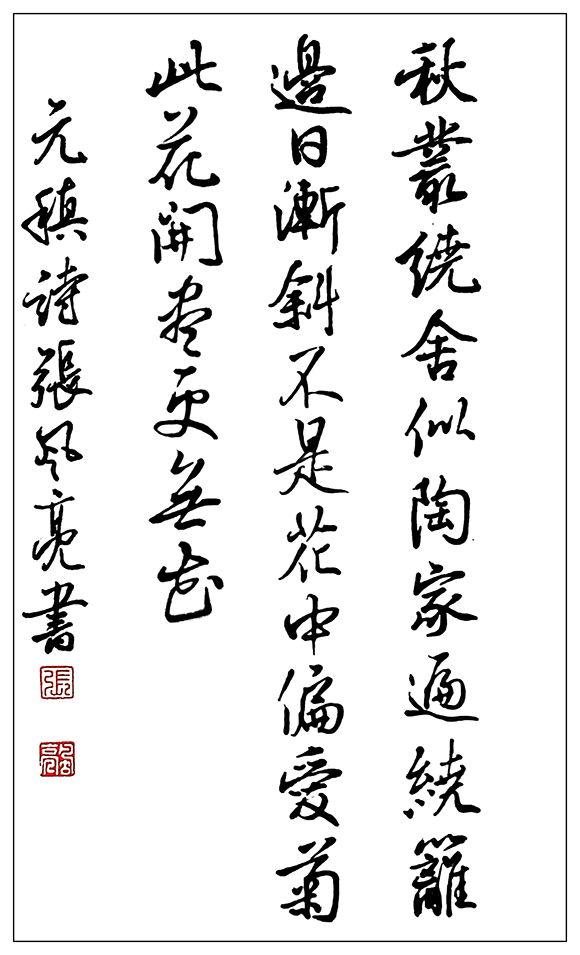 秋叢繞舍似陶家遍繞籬
邊日漸斜不是花中偏愛菊
此花開盡更無花
元稹詩張風亮書
張